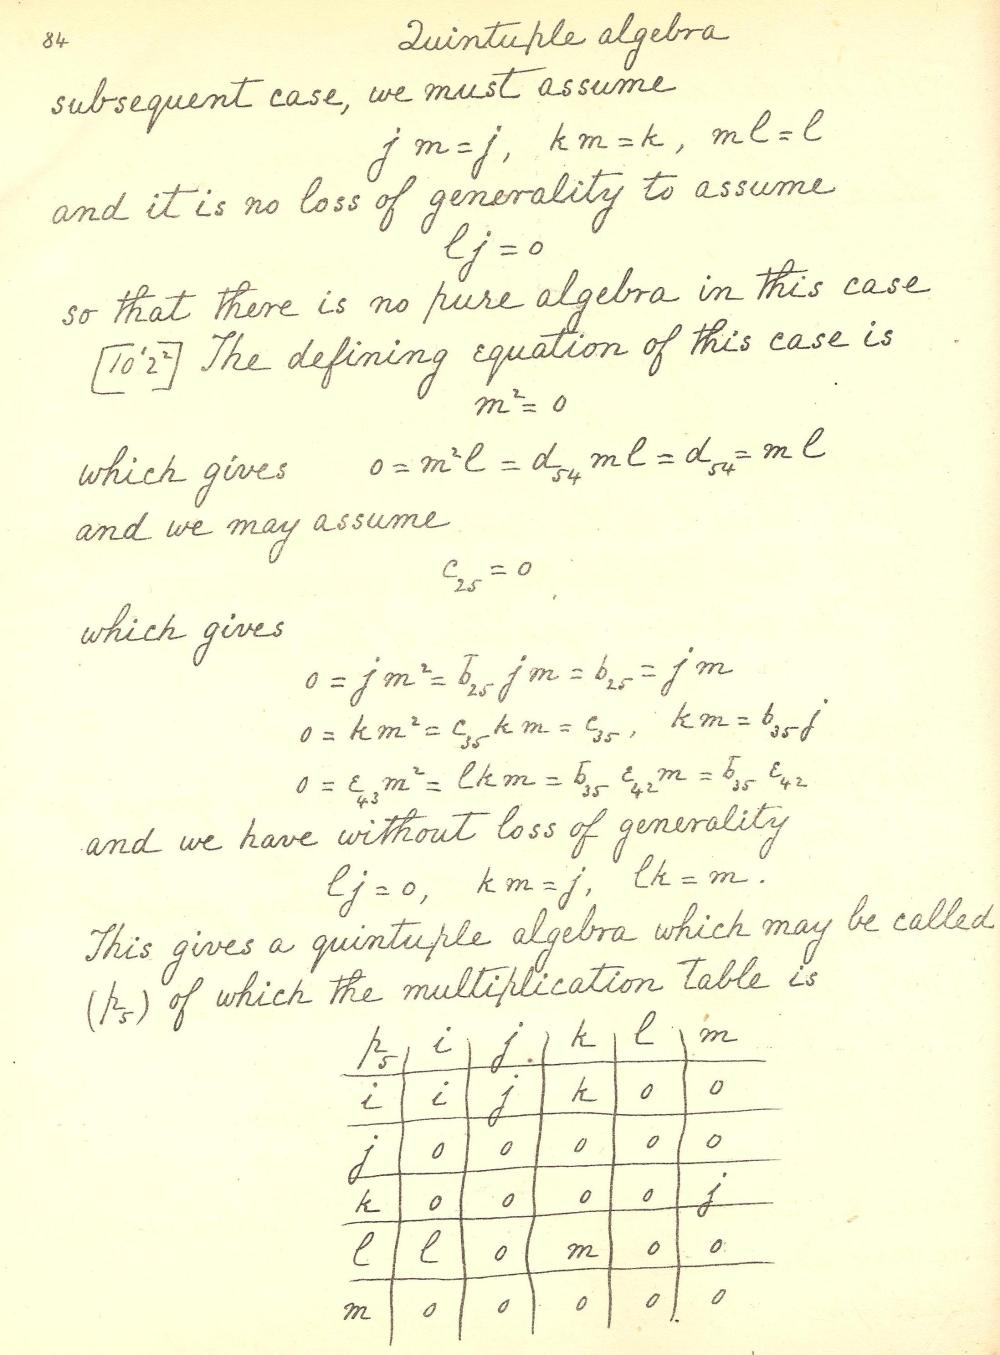 84 Quintuple algebra
subsequent case, we must assume
jm=j, km=k, ml=l
and it is no loss of generality to assume
lj=0
so that there is no pure algebra in this case
[10'2²] The defining equation of this case is
m²=0
which gives 0=m²l=d₅₄ml=d₅₄=ml
and we may assume
c₂₅=0
which gives
0=jm²=b₂₅jm=b₂₅=jm
0=km²=c₃₅km=c₃₅, km=b₃₅j
0=ε₄₃m²=lkm=b₃₅ε₄₂m=b₃₅ε₄₂
and we have without loss of generality
lj=0, km=j, lk=m.
This gives a quintuple algebra which may be called
(p₅) of which the multiplication table is
p₅ i j k l m
i i j k 0 0
j 0 0 0 0 0
k 0 0 0 0 j
l l 0 m 0 0
m 0 0 0 0 0